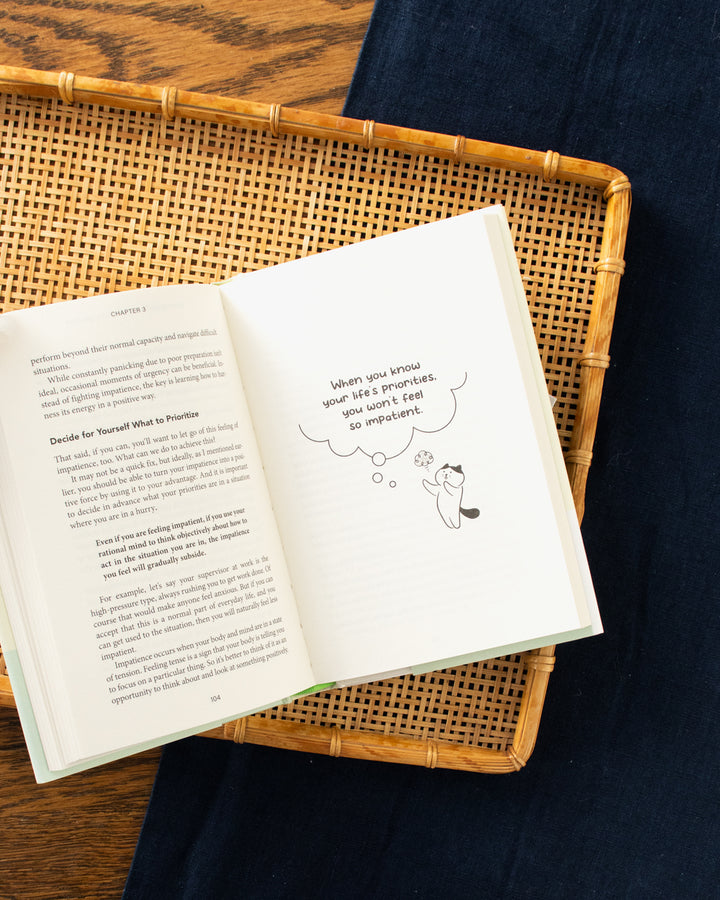 CHAPTER 3
perform beyond their normal capacity and navigate difficult
situations.
While constantly panicking due to poor preparation isn't
ideal, occasional moments of urgency can be beneficial. In-
stead of fighting impatience, the key is learning how to har-
ness its energy in a positive way.
Decide for Yourself What to Prioritize
That said, if you can, you'll want to let go of this feeling of
impatience, too. What can we do to achieve this?
It may not be a quick fix, but ideally, as I mentioned ear-
lier, you should be able to turn your impatience into a posi-
tive force by using it to your advantage. And it is important
to decide in advance what your priorities are in a situation
where you are in a hurry.
Even if you are feeling impatient, if you use your
rational mind to think objectively about how to
act in the situation you are in, the impatience
you feel will gradually subside.
For example, let's say your supervisor at work is the
high-pressure type, always rushing you to get work done. Of
course that would make anyone feel anxious. But if you can
accept that this is a normal part of everyday life, and you
can get used to the situation, then you will naturally feel less
impatient.
Impatience occurs when your body and mind are in a state
of tension. Feeling tense is a sign that your body is telling you
to focus on a particular thing. So it's better to think of it as an
opportunity to think about and look at something positively.
104
When you know
your life's priorities,
you won't feel
so impatient.